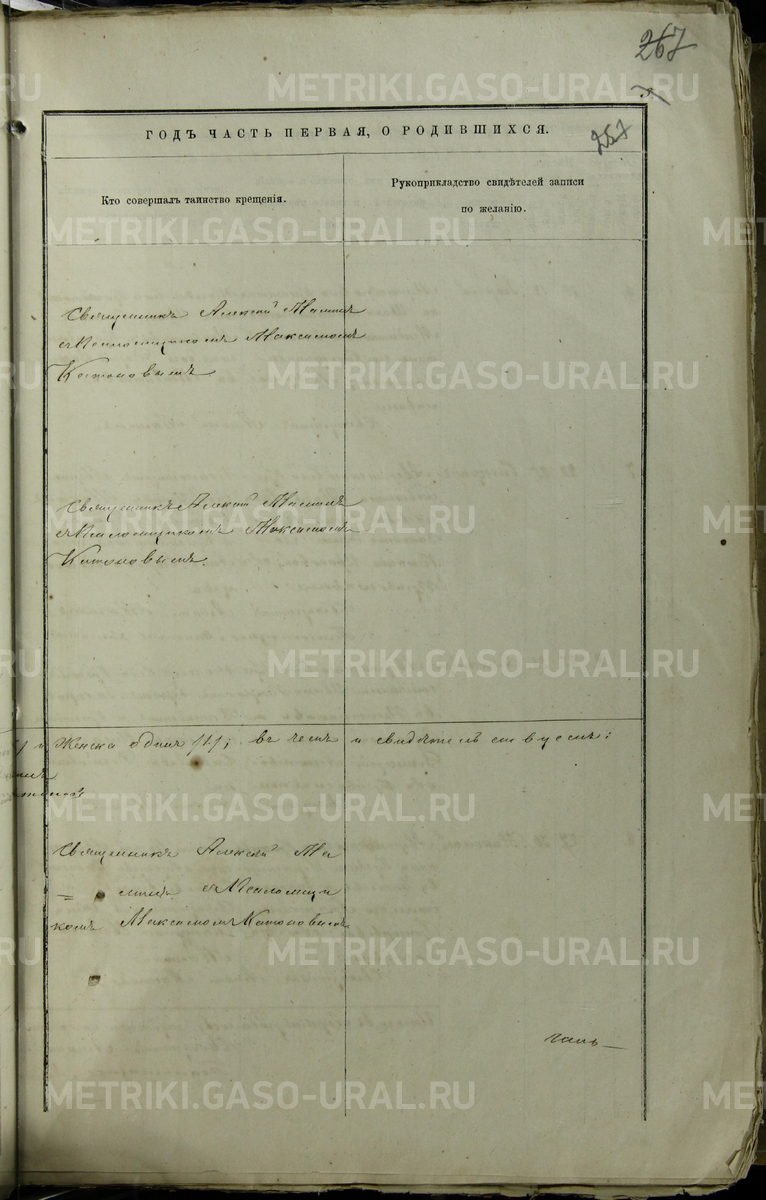 267
257
ГОДЪ ЧАСТЬ ПЕРВАЯ, О РОДИВШИХСЯ.
Кто совершалъ таинство крещенія.
Рукоприкладство свидѣтелей записи
по желанію.
Священникъ Алексій
съ Псаломщикомъ Максимомъ
Катоновымъ
Священникъ Алексій
съ Псаломщикомъ Максимомъ
Катоновымъ.
и Женска одинъ /1/; въ чемъ и свидѣтельствуемъ:
Священникъ Алексій
съ Псаломщи
комъ Максимомъ Катоновымъ
METRIKI.GASO-URAL.RU